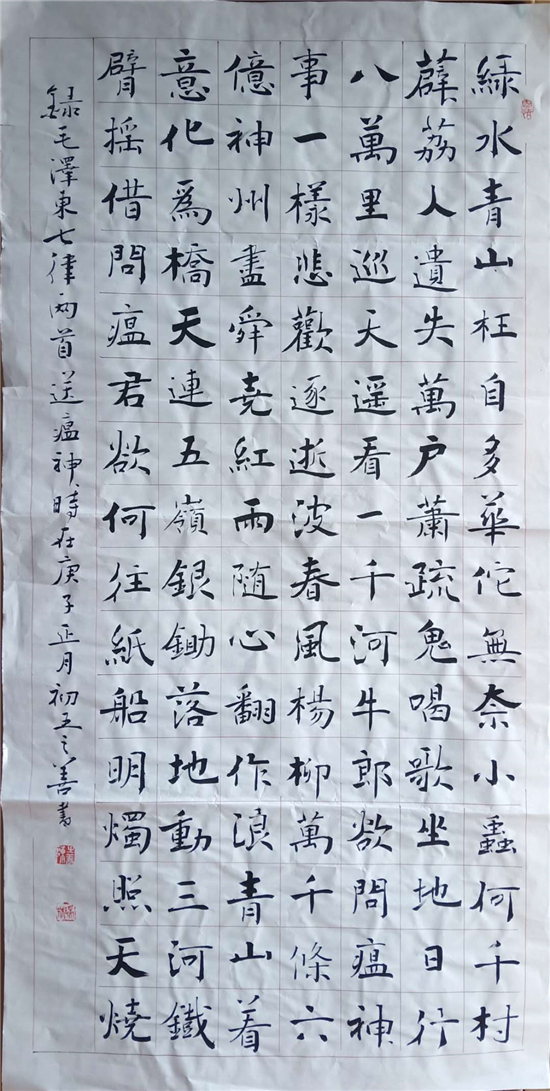 綠水青山枉自多華佗無奈小蟲何千村
薜荔人遺失萬户蕭疏鬼喝歌坐地日行
八萬里巡天遥看一千河牛郎欲問瘟神
事一樣悲歡逐逝波春風楊柳萬千條六
億神州盡舜堯紅雨随心翻作浪青山着
意化爲橋天連五嶺銀鋤落地動三河鐵
臂摇借問瘟君欲何往紙船明燭照天燒
録毛澤東七律兩首送瘟神時在庚子正月初五之善書